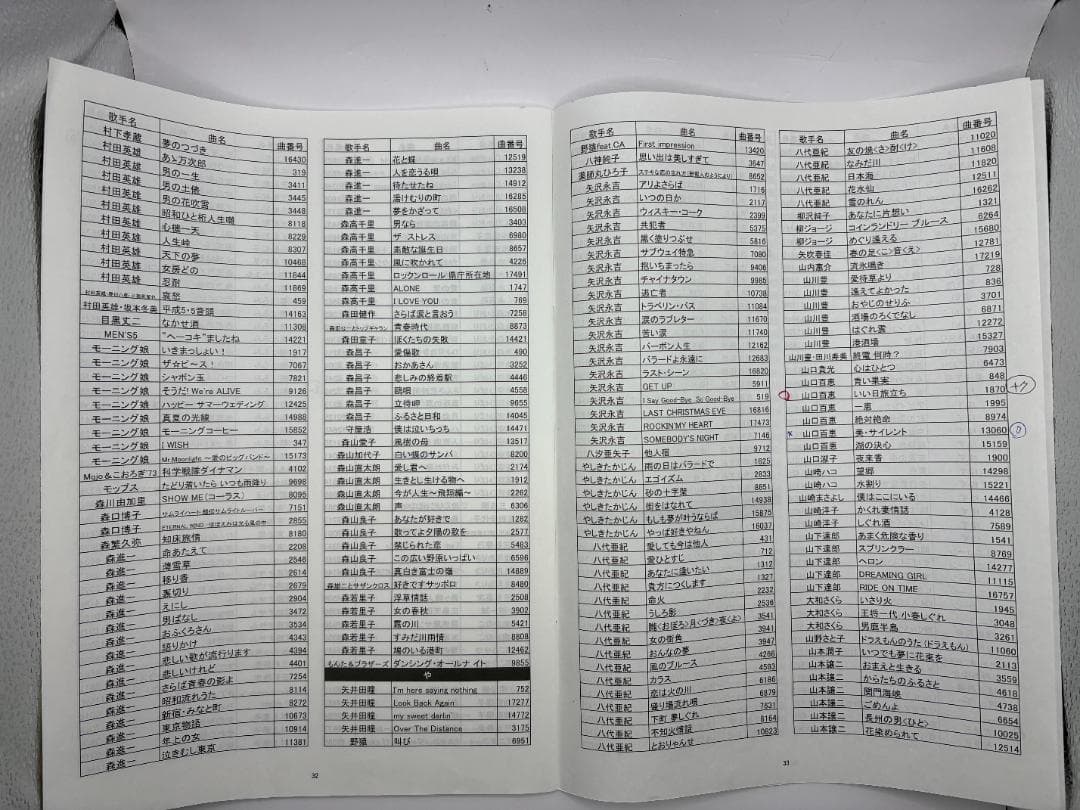 歌手名 曲名 曲番号
村下孝蔵 夢のつづき 16430
村田英雄 あゝ万次郎 319
村田英雄 男の一生 3411
村田英雄 男の土俵 3445
村田英雄 男の花吹雪 3448
村田英雄 昭和ひと桁人生囃 8118
村田英雄 心機一天 8229
村田英雄 人生峠 8307
村田英雄 天下の夢 10468
村田英雄 女房どの 11844
村田英雄 忍耐 11869
哀愁 459
村田英雄・坂本冬美 平成5・5音頭 14163
目黒丈二 なかせ酒 11308
MEN'S5 "ヘーコキ"ましたね 14221
モーニング娘 いきまっしょい! 1917
モーニング娘 ザ☆ピ〜ス! 7067
モーニング娘 シャボン玉 7821
モーニング娘 そうだ!We're ALIVE 9126
モーニング娘 ハッピー サマーウェディング 12425
モーニング娘 真夏の光線 14988
モーニング娘 モーニングコーヒー 15652
モーニング娘 I WISH 347
モーニング娘 Mr.Moonlight 〜愛のビッグバンド〜 15173
Mojo&こおろぎ'73 科学戦隊ダイナマン 4102
モップス たどり着いたら いつも雨降り 9698
森川由加里 SHOW ME(コーラス) 8095
森口博子 7151
森口博子 2855
森繁久弥 知床旅情 8180
森進一 命あたえて 2208
森進一 2546
森進一 移り香 2614
森進一 裏切り 2679
森進一 えにし 2904
森進一 男ばなし 3472
森進一 おふくろさん 3534
森進一 語りかけ 4343
森進一 悲しい歌が流行ります 4394
森進一 悲しいけれど 4401
森進一 さらば青春の影よ 7254
森進一 昭和流れうた 8114
森進一 新宿・みなと町 8272
森進一 東京物語 10673
森進一 年上の女 10914
森進一 泣きむし東京 11381
歌手名 曲名 曲番号
森進一 花と蝶 12519
森進一 人を恋うる唄 13238
森進一 待たせたね 14912
森進一 湯けむりの町 16285
森進一 夢をかざって 16508
森高千里 男なら 3403
森高千里 ザ ストレス 6980
森高千里 素敵な誕生日 8657
森高千里 風に吹かれて 4225
森高千里 ロックンロール 県庁所在地 17491
森高千里 ALONE 1747
森高千里 I LOVE YOU 769
森田健作 さらば涙と言おう 7258
青春時代 8673
森田童子 ぼくたちの失敗 14421
森昌子 愛傷歌 490
森昌子 おかあさん 3252
森昌子 悲しみの終着駅 4446
森昌子 4558
森昌子 立待岬 9655
森昌子 ふるさと日和 14045
守屋浩 僕は泣いちっち 14471
森山愛子 風樹の母 13517
森山加代子 白い蝶のサンバ 8200
森山直太朗 愛し君へ 2174
森山直太朗 生きとし生ける物へ 1912
森山直太朗 今が人生〜飛翔編〜 2262
森山直太朗 声 6306
森山良子 あなたが好きで 1282
森山良子 歌ってよ夕陽の歌を 2577
森山良子 禁じられた恋 5483
森山良子 この広い野原いっぱい 6596
森山良子 真白き富士の嶺 14889
森雄二とサザンクロス 好きですサッポロ 8480
森若里子 浮草情話 2508
森若里子 女の春秋 3902
森若里子 霧の川 5421
森若里子 すみだ川雨情 8808
森若里子 鳩のいる港町 12462
もんた&ブラザーズ ダンシング・オールナイト 9855
や
矢井田瞳 I'm here saying nothing 752
矢井田瞳 Look Back Again 17277
矢井田瞳 my sweet darlin' 14772
矢井田瞳 Over The Distance 3175
野猿 叫び 6951
32
歌手名 曲名 曲番号
野猿feat.CA First impression 13420
八神純子 思い出は美しすぎて 3647
薬師丸ひろ子 8652
矢沢永吉 アリよさらば 1716
矢沢永吉 いつの日か 2117
矢沢永吉 ウィスキー・コーク 2399
矢沢永吉 共犯者 5375
矢沢永吉 黒く塗りつぶせ 5816
矢沢永吉 サブウェイ特急 7090
矢沢永吉 抱いちまったら 9406
矢沢永吉 チャイナタウン 9985
矢沢永吉 逃亡者 10738
矢沢永吉 トラベリン・バス 11084
矢沢永吉 涙のラブレター 11670
矢沢永吉 苦い涙 11740
矢沢永吉 バーボン人生 12162
矢沢永吉 バラードよ永遠に 12683
矢沢永吉 ラスト・シーン 16820
矢沢永吉 GET UP 5911
矢沢永吉 I Say Good-Bye, So Good-Bye 519
矢沢永吉 LAST CHRISTMAS EVE 16816
矢沢永吉 ROCKIN'MY HEART 17473
矢沢永吉 SOMEBODY'S NIGHT 7146
八汐亜矢子 他人宿 9712
やしきたかじん 雨の日はバラードで 1625
やしきたかじん エゴイズム 2833
やしきたかじん 砂の十字架 8651
やしきたかじん 街をはなれて 14938
やしきたかじん もしも夢が叶うならば 15875
やしきたかじん やっぱ好きやねん 16037
八代亜紀 愛しても今は他人 431
八代亜紀 愛ひとすじ 712
八代亜紀 あなたに逢いたい 1312
八代亜紀 貴方につくします 1327
八代亜紀 命火 2232
八代亜紀 うしろ影 2536
八代亜紀 3941
八代亜紀 女の街角 3947
八代亜紀 おんなの夢 4286
八代亜紀 風のブルース 4593
八代亜紀 カラス 6186
八代亜紀 恋は火の川 6879
八代亜紀 盛り場流れ唄 7631
八代亜紀 下町 夢しぐれ 8164
八代亜紀 不知火情話 10623
八代亜紀 とおりゃんせ
歌手名 曲名 曲番号
八代亜紀 11020
八代亜紀 なみだ川 11608
八代亜紀 日本海 11820
八代亜紀 花水仙 12511
八代亜紀 雪のれん 16262
柳沢純子 あなたに片想い 1321
柳ジョージ コインランドリー ブルース 6264
柳ジョージ めぐり逢える 15680
矢吹春佳 12781
山内惠介 流氷鳴き 17219
山川豊 愛待草より 728
山川豊 逢えてよかった 836
山川豊 おやじのせりふ 3701
山川豊 酒場のろくでなし 6871
山川豊 はぐれ雲 12272
山川豊 港酒場 15327
山川豊・田川寿美 終電 何時? 7903
山口貴光 心はひとつ 6473
山口百恵 青い果実 848
山口百恵 いい日旅立ち 1870
山口百恵 一恵 1995
山口百恵 絶対絶命 8974
山口百恵 美・サイレント 13060
山口百恵 湖の決心 15159
山口淑子 夜来香 1900
山崎ハコ 望郷 14298
山崎ハコ 水割り 15221
山崎まさよし 僕はここにいる 14466
山崎洋子 かくれ妻情話 4128
山崎洋子 しぐれ酒 7589
山下達郎 あまく危険な香り 1541
山下達郎 スプリンクラー 8769
山下達郎 ヘロン 14277
山下達郎 DREAMING GIRL 11115
山下達郎 RIDE ON TIME 16757
大和さくら いさり火 1945
大和さくら 王将一代 小春しぐれ 3048
大和さくら 男鹿半島 3261
山野さと子 ドラえもんのうた(ドラえもん) 11060
山本潤子 いつでも夢に花束を 2113
山本譲二 おまえと生きる 3559
山本譲二 からたちのふるさと 4618
山本譲二 関門海峡 4738
山本譲二 ごめんよ 6654
山本譲二 長州の男<ひと> 10025
山本譲二 花染められて 12514
33